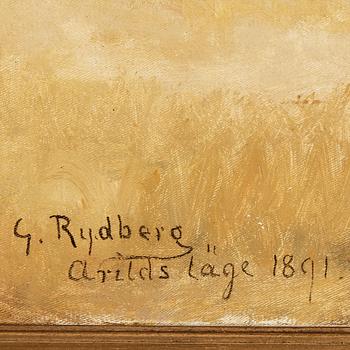 G. Rydberg
Arilds läge 1891.